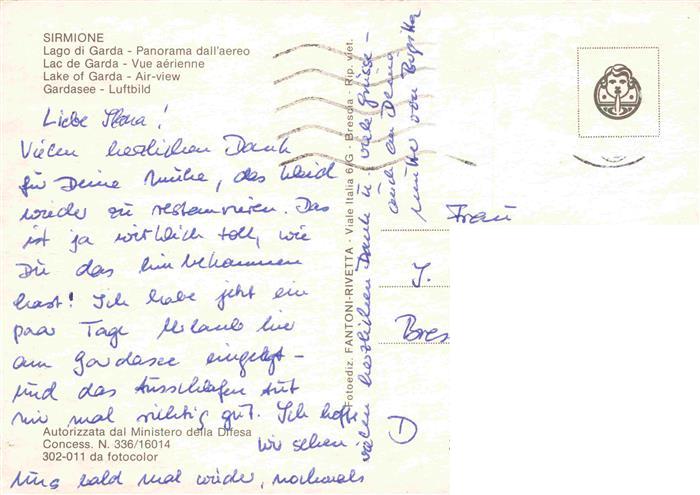 SIRMIONE
Lago di Garda - Panorama dall'aereo
Lac de Garda - Vue aérienne
Lake of Garda - Air-view
Gardasee - Luftbild
Liebe !
Vielen herzlichen Dank
für Deine Mühe, das Kleid
wieder zu restaurieren. Das
ist ja wirklich toll, wie
Du das hinbekommen
hast! Ich habe jetzt ein
paar Tage Urlaub hier
am Gardasee eingelegt -
und das Ausschlafen tut
mir mal richtig gut. Ich hoffe
wir sehen
uns bald mal wieder, nochmals
vielen herzlichen Dank u. viele Grüsse -
auch an Deine
Mutter von Birgitta
Autorizzata dal Ministero della Difesa
Concess. N. 336/16014
302-011 da fotocolor
Fotoediz. FANTONI-RIVETTA - Viale Italia 6/G - Brescia - Rip. viet.
Frau
Bres